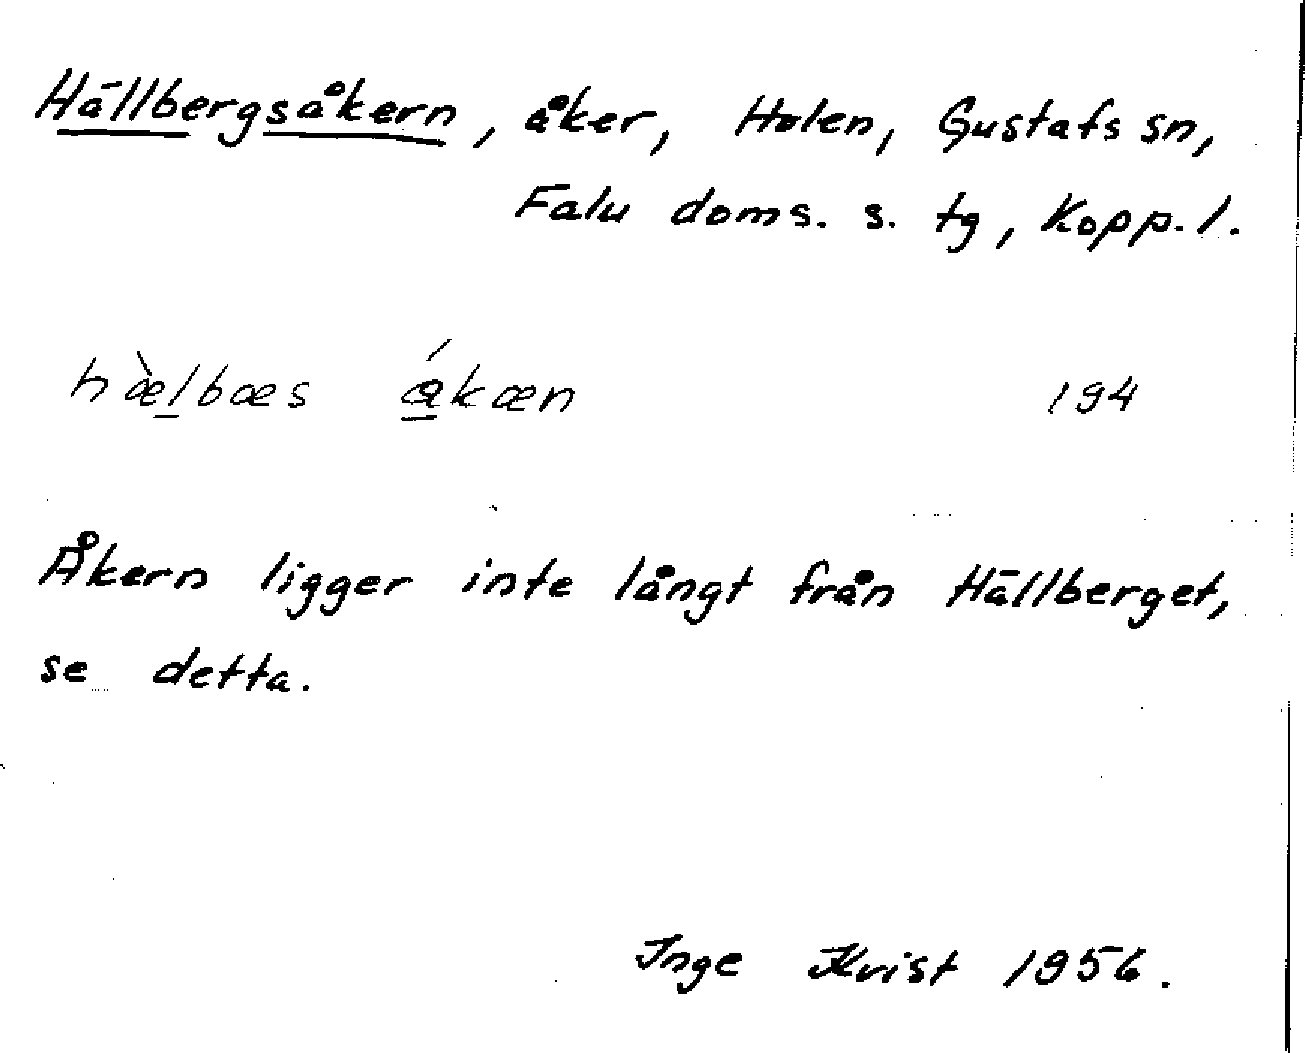 Hällbergsåkern, åker, Holen, Gustafs sn,
Falu doms. s. tg, Kopp. l.
hæ̀lbæs ákæn 194
Åkern ligger inte långt från Hällberget,
se detta.
Inge Kvist 1956.